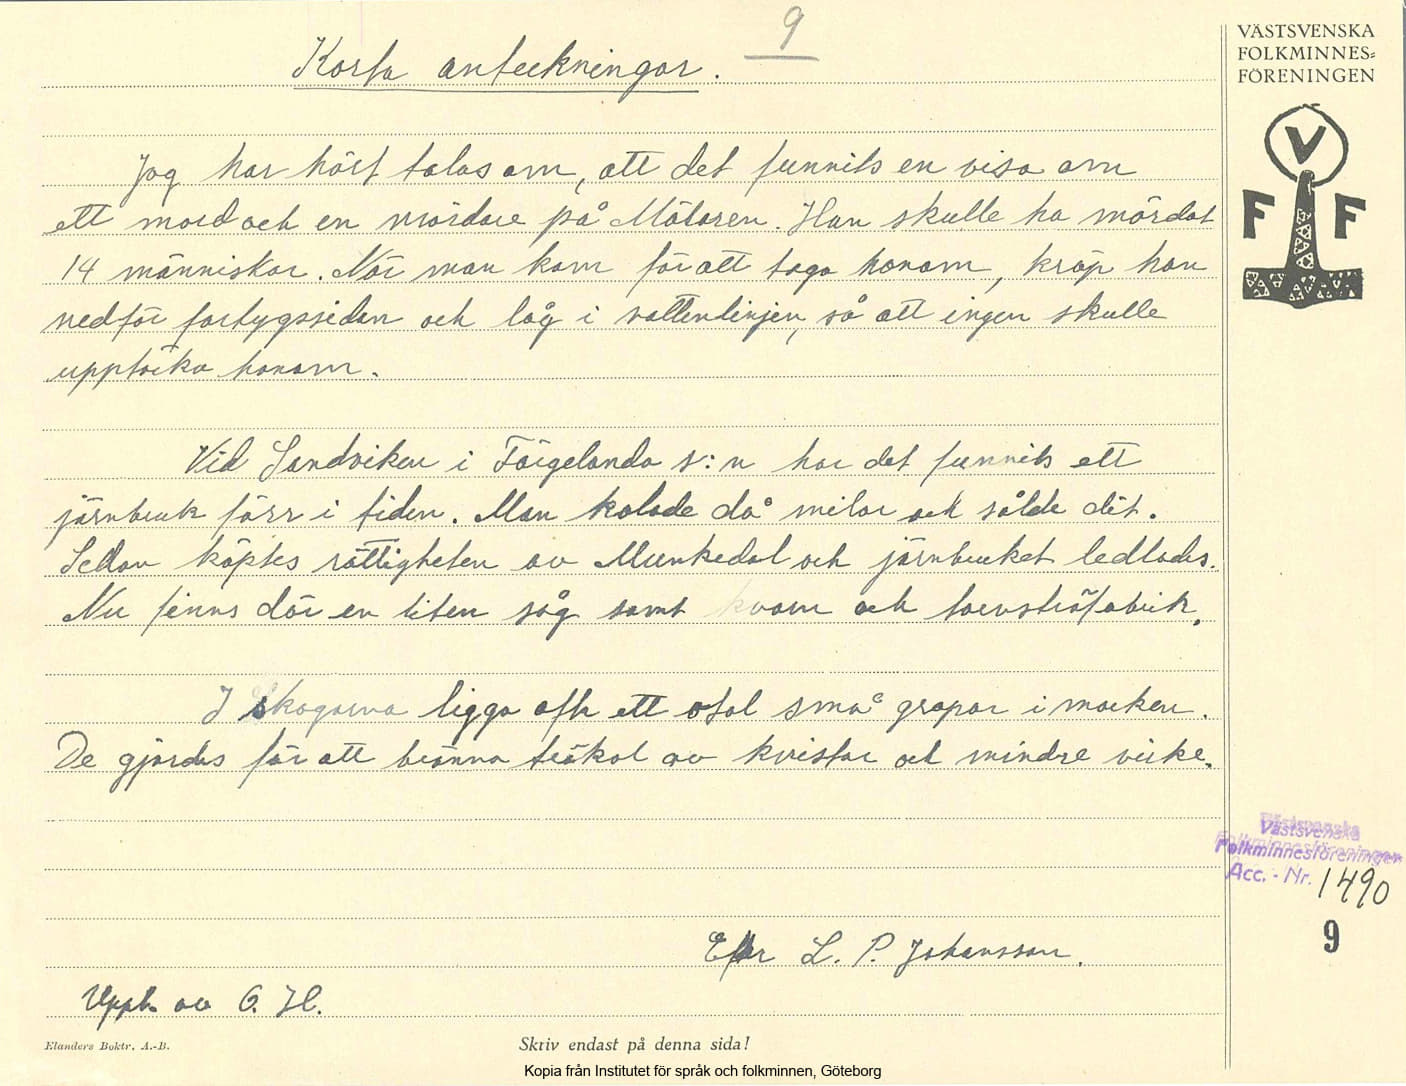 9
Korta anteckningar.
VÄSTSVENSKA
FOLKMINNES=
FÖRENINGEN
V
F F
Jag har hört talas om, att det funnits en visa om
ett mord och en mördare på Mätaren. Han skulle ha mördat
14 människor. När man kom för att taga honom, kröp han
nedför fartygssidan och låg i vattenlinjen, så att ingen skulle
upptäcka honom.
Vid Sandviken i Färgelanda s:n har det funnits ett
järnbruk förr i tiden. Man kolade då milor och sålde dit.
Sedan köptes rättigheten av Munkedal och järnbruket nedlades.
Nu finns där en liten såg samt kvarn och torvströfabrik.
I skogarna ligga ofta ett otal små gropar i marken.
De gjordes för att bränna träkol av kvistar och mindre virke.
Västsvenska
Folkminnesföreningen
Acc. - Nr. 1490
9
Efter L. P. Johansson.
Uppt. av O. H.
Elanders Boktr. A.-B.
Skriv endast på denna sida!
Kopia från Institutet för språk och folkminnen, Göteborg